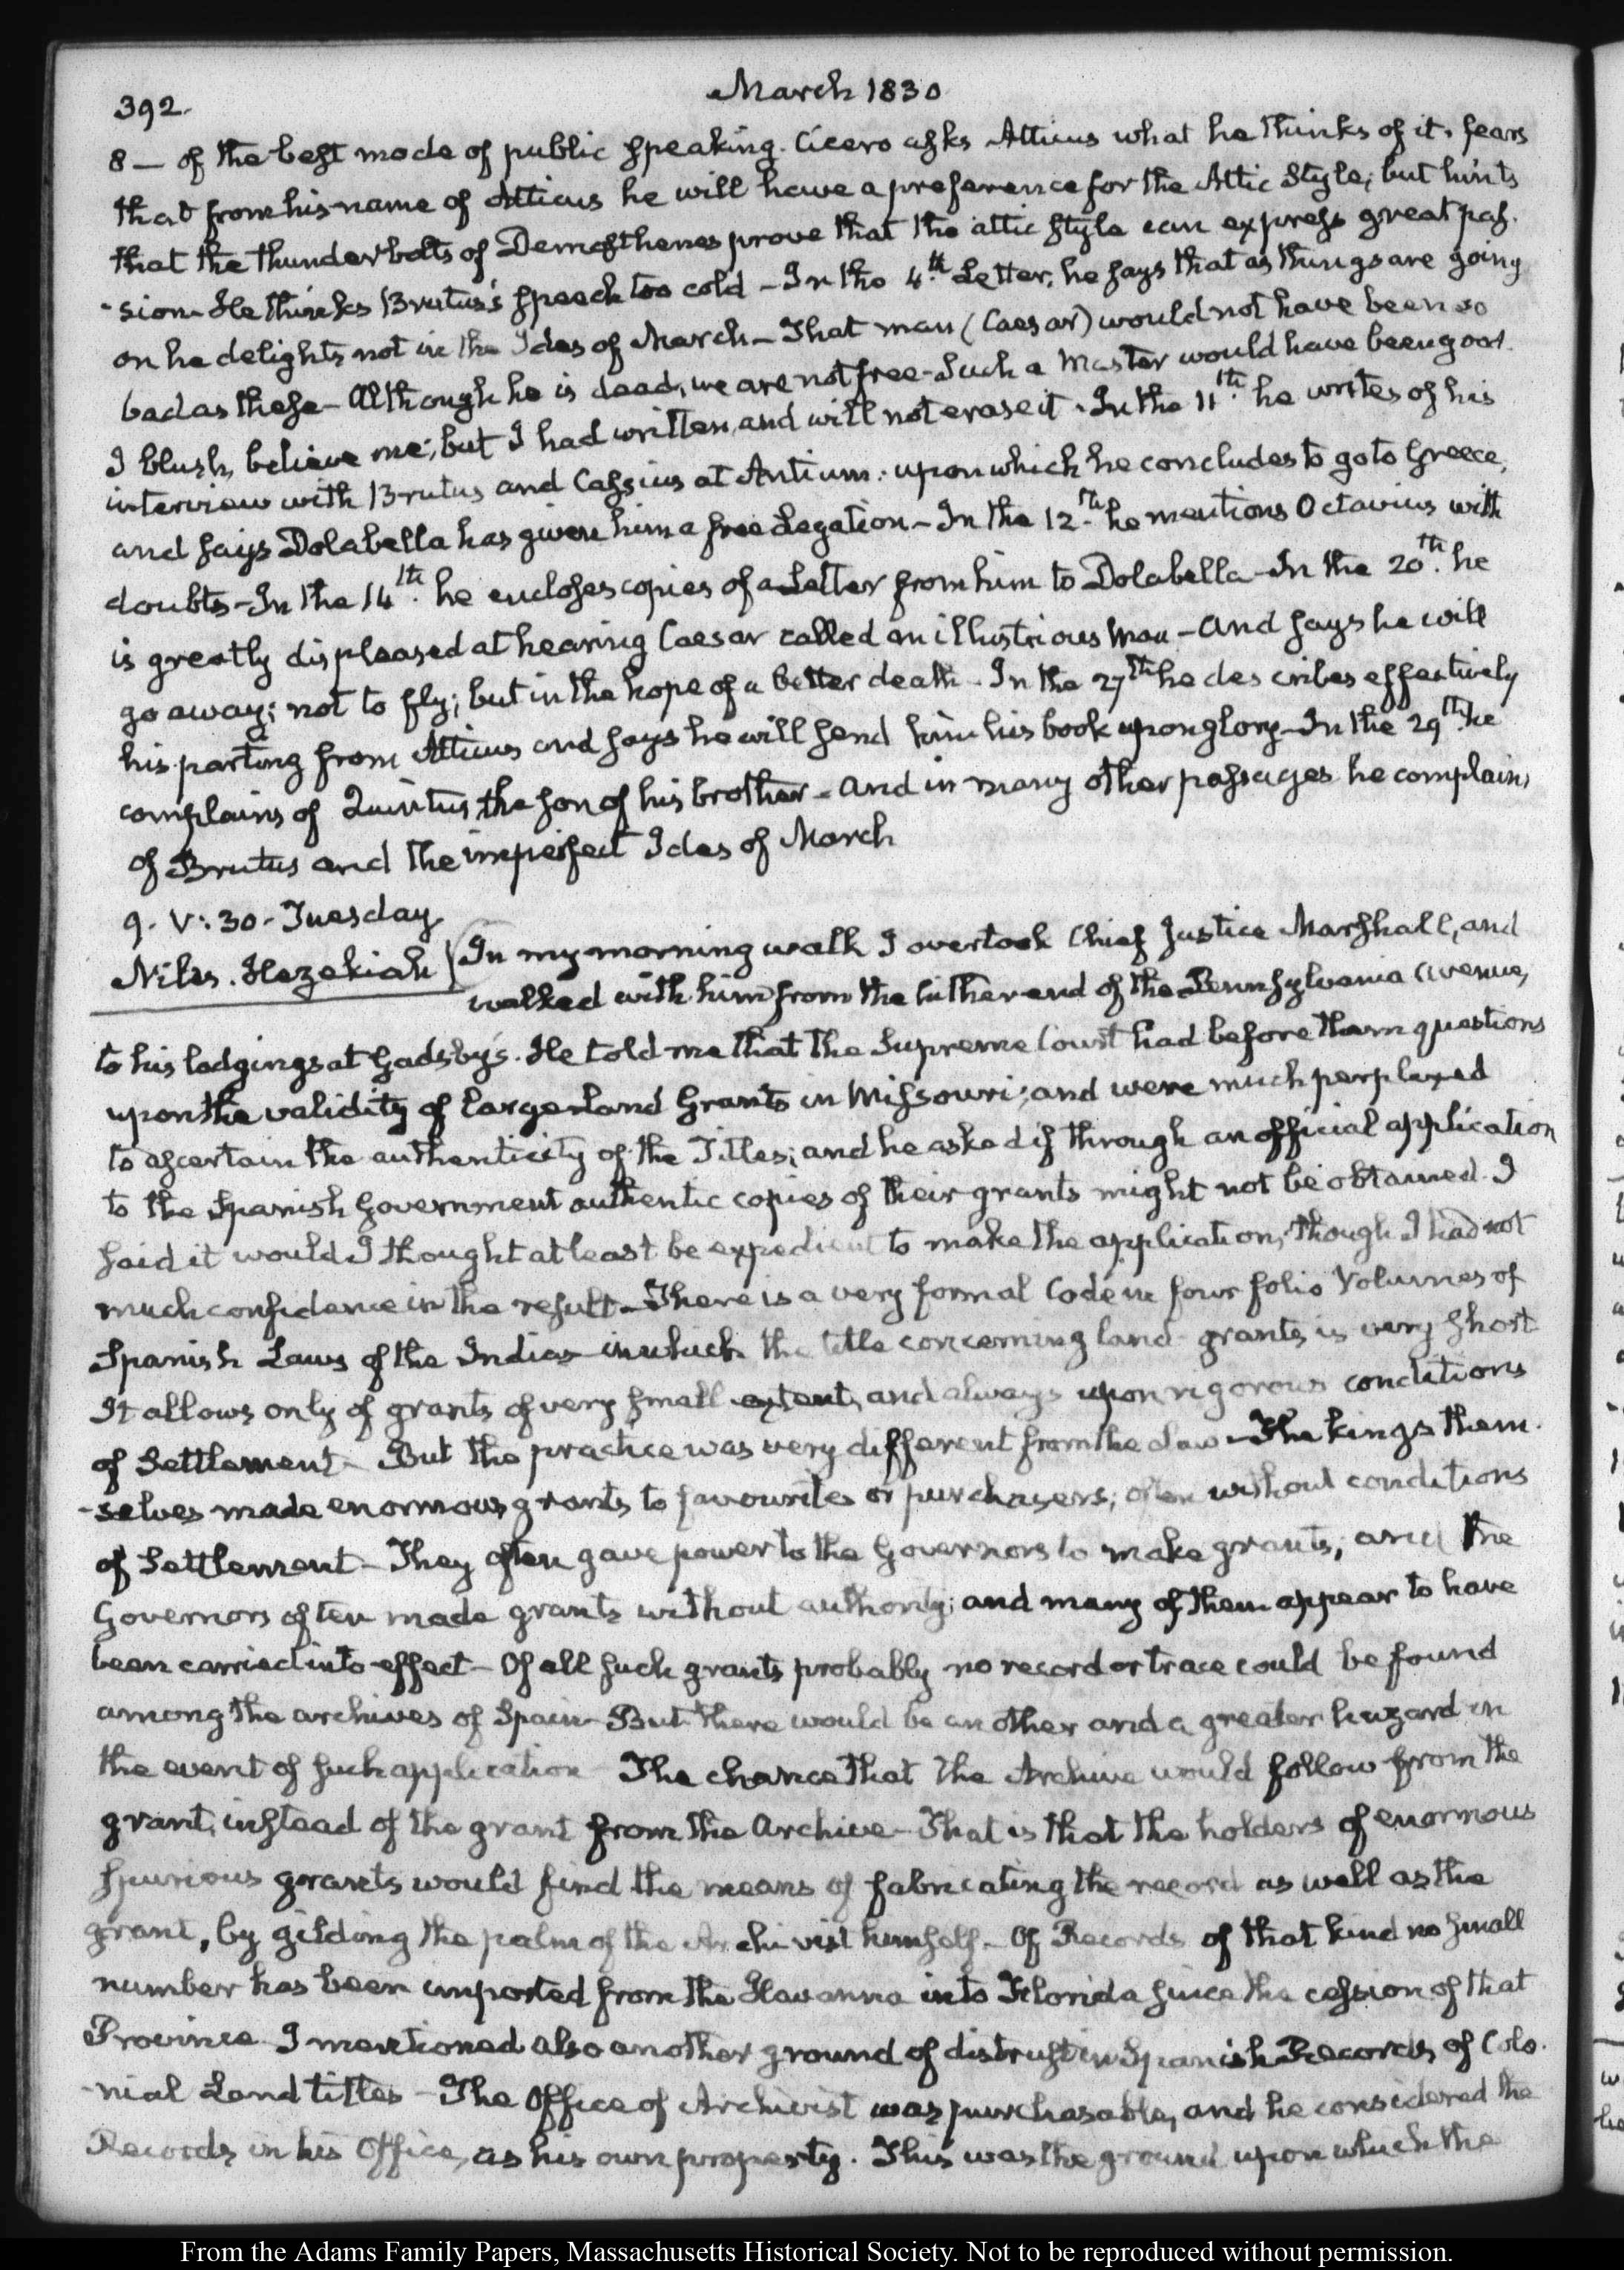 392.
March 1830
8 — of the best mode of public speaking. Cicero asks Atticus what he thinks of it, fears
that from his name of Atticus he will have a preference for the Attic Style; but hints
that the thunderbolts of Demosthenes prove that the attic style can express great pas-
-sion. He thinks Brutus's speech too cold — In the 4th. Letter, he says that as things are going
on he delights not in the Ides of March — That man (Caesar) would not have been so
bad as these — Although he is dead, we are not free — Such a Master would have been good.
I blush, believe me; but I had written, and will not erase it. In the 11th. he writes of his
interview with Brutus and Cassius at Antium: upon which he concludes to go to Greece,
and says Dolabella has given him a free Legation — In the 12th. he mentions Octavius with
doubts — In the 14th. he encloses copies of a Letter from him to Dolabella — In the 20th. he
is greatly displeased at hearing Caesar called an illustrious Man — and says he will
go away; not to fly; but in the hope of a better death — In the 27th he describes effectively
his parting from Atticus and says he will send him his book upon glory — In the 29th. he
complains of Quintus, the son of his brother — and in many other passages he complains
of Brutus and the imperfect Ides of March
9. V: 30. Tuesday
Niles. Hezekiah } In my morning walk I overtook Chief Justice Marshall, and
walked with him from the hither end of the Pennsylvania Avenue,
to his lodgings at Gadsby's. He told me that the Supreme Court had before them questions
upon the validity of large Land Grants in Missouri; and were much perplexed
to ascertain the authenticity of the Titles; and he asked if through an official application
to the Spanish Government authentic copies of their grants might not be obtained. I
said it would I thought at least be expedient to make the application, though I had not
much confidence in the result — There is a very formal Code in four folio Volumes of
Spanish Laws of the Indias in which the title concerning land-grants is very short
It allows only of grants of very small extent, and always upon rigorous conditions
of Settlement — But the practice was very different from the Law — The kings them-
-selves made enormous grants to favourites or purchasers; often without conditions
of Settlement — They often gave power to the Governors to make grants, and the
Governors often made grants without authority; and many of them appear to have
been carried into effect — Of all such grants probably no record or trace could be found
among the archives of Spain — But there would be another and a greater hazard in
the event of such application — The chance that the Archive would follow from the
grant, instead of the grant from the Archive — That is that the holders of enormous
spurious grants would find the means of fabricating the record as well as the
grant, by gilding the palm of the Archivist himself — Of Records of that kind no small
number has been imported from the Havanna into Florida since the cession of that
Province. I mentioned also another ground of distrust in Spanish Records of Colo-
-nial Land titles — The Office of Archivist was purchasable, and he considered the
Records in his Office, as his own property. This was the ground upon which the
From the Adams Family Papers, Massachusetts Historical Society. Not to be reproduced without permission.